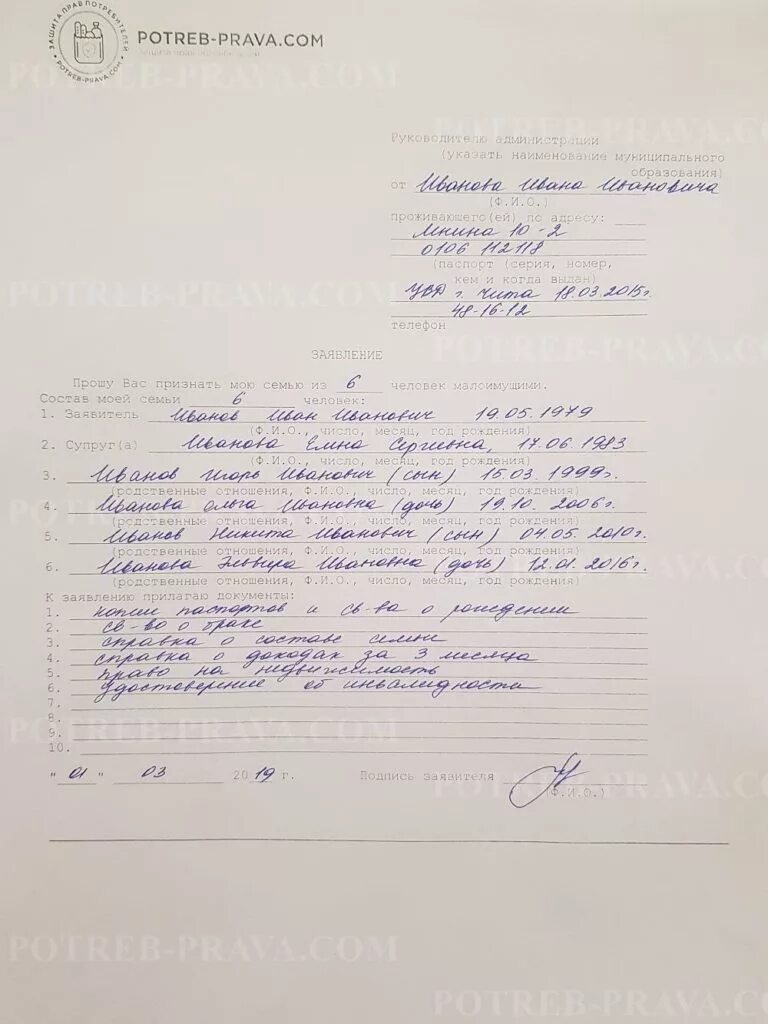 ЗАЩИТА ПРАВ ПОТРЕБИТЕЛЕЙ
POTREB-PRAVA.COM
POTREB-PRAVA.COM
Руководителю администрации
(указать наименование муниципального
образования)
от Иванова Ивана Ивановича
(Ф.И.О.)
проживающего(ей) по адресу:
Мнина 10-2
0106 112118
(паспорт (серия, номер,
кем и когда выдан)
УВД г. Чита 18.03.2015г.
48-16-12
телефон
ЗАЯВЛЕНИЕ
Прошу Вас признать мою семью из 6 человек малоимущими.
Состав моей семьи 6 человек:
1. Заявитель Иванов Иван Иванович 19.05.1979
(Ф.И.О., число, месяц, год рождения)
2. Супруг(а) Иванова Елена Сергиевна, 17.06.1983
(Ф.И.О., число, месяц, год рождения)
3. Иванов Игорь Иванович (сын) 15.03.1999г.
(родственные отношения, Ф.И.О., число, месяц, год рождения)
4. Иванова Ольга Ивановна (дочь) 19.10.2006г.
(родственные отношения, Ф.И.О., число, месяц, год рождения)
5. Иванов Никита Иванович (сын) 04.05.2010г.
(родственные отношения, Ф.И.О., число, месяц, год рождения)
6. Иванова Эльвира Ивановна (дочь) 12.01.2016г.
(родственные отношения, Ф.И.О., число, месяц, год рождения)
К заявлению прилагаю документы:
1. копии паспортов и св-ва о рождении
2. св-во о браке
3. справка о составе семьи
4. справка о доходах за 3 месяца
5. право на недвижимость
6. удостоверение об инвалидности
7.
8.
9.
10.
"01" 03 2019 г. Подпись заявителя
(Ф.И.О.)